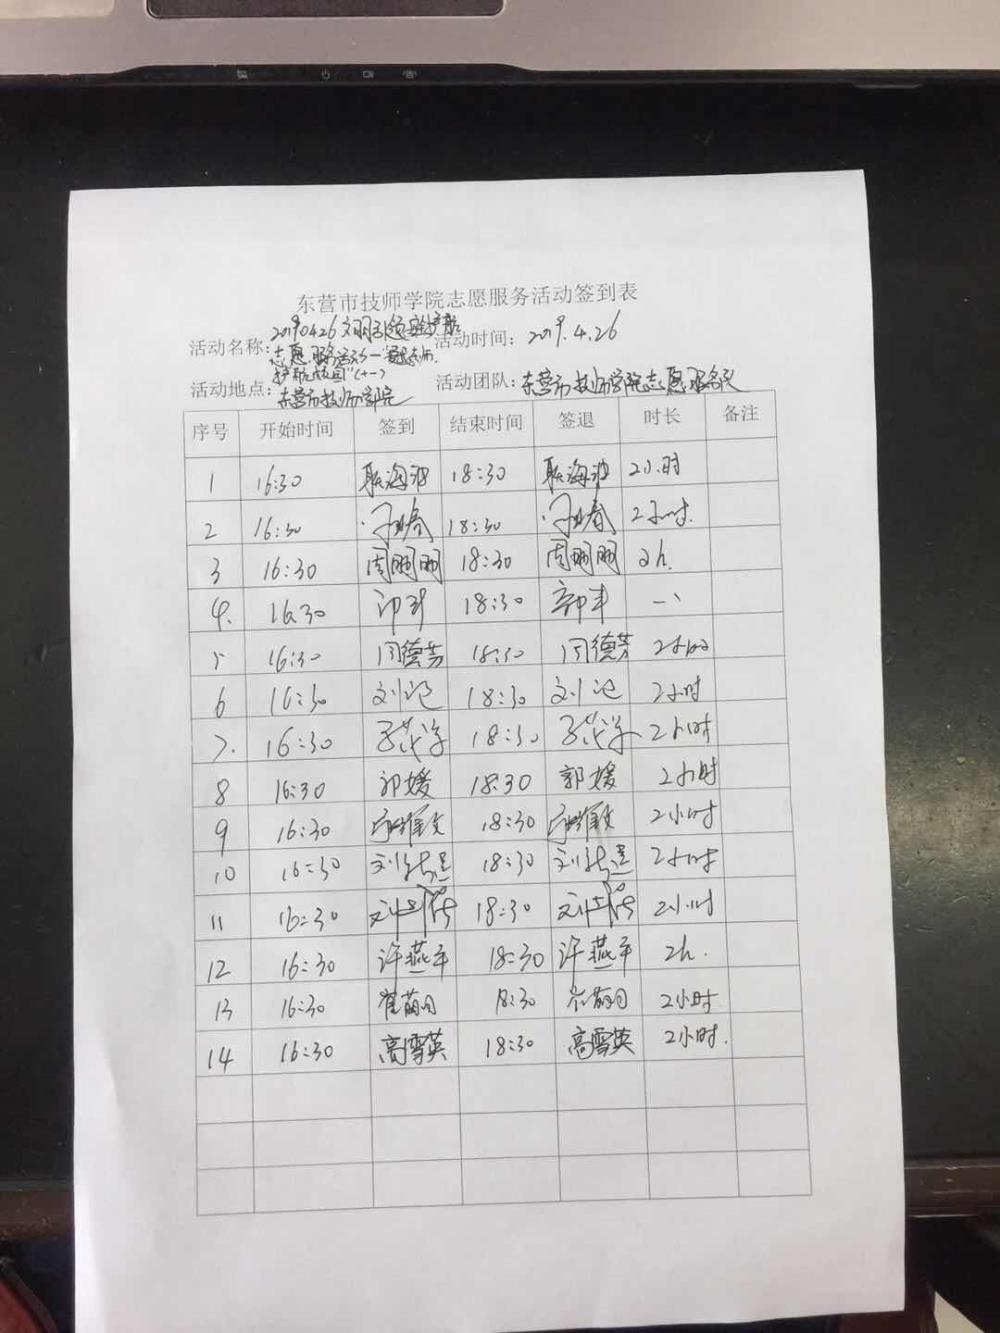 东营市技师学院志愿服务活动签到表
活动名称：20190426文明引领
活动时间：2019.4.26
志愿服务活动
护航校园"(十一)
活动地点：东营市技师学院
活动团队：东营市技师学院志愿服务队
序号 开始时间 签到 结束时间 签退 时长 备注
1 16:30 耿海波 18:30 耿海波 2小时
2 16:30 18:30 2小时.
3 16:30 周丽丽 18:30 周丽丽 2h.
4. 16:30 18:30
5 16:30 闫德芳 18:30 闫德芳 2小时
6 16:30 18:30 2小时
7. 16:30 18:30 2小时
8 16:30 郭媛 18:30 郭媛 2小时
9 16:30 18:30 2小时
10 16:30 18:30 2小时
11 16:30 18:30 2小时
12 16:30 许燕平 18:30 许燕平 2h.
13 16:30 崔萌 18:30 崔萌 2小时
14 16:30 高雪英 18:30 高雪英 2小时.